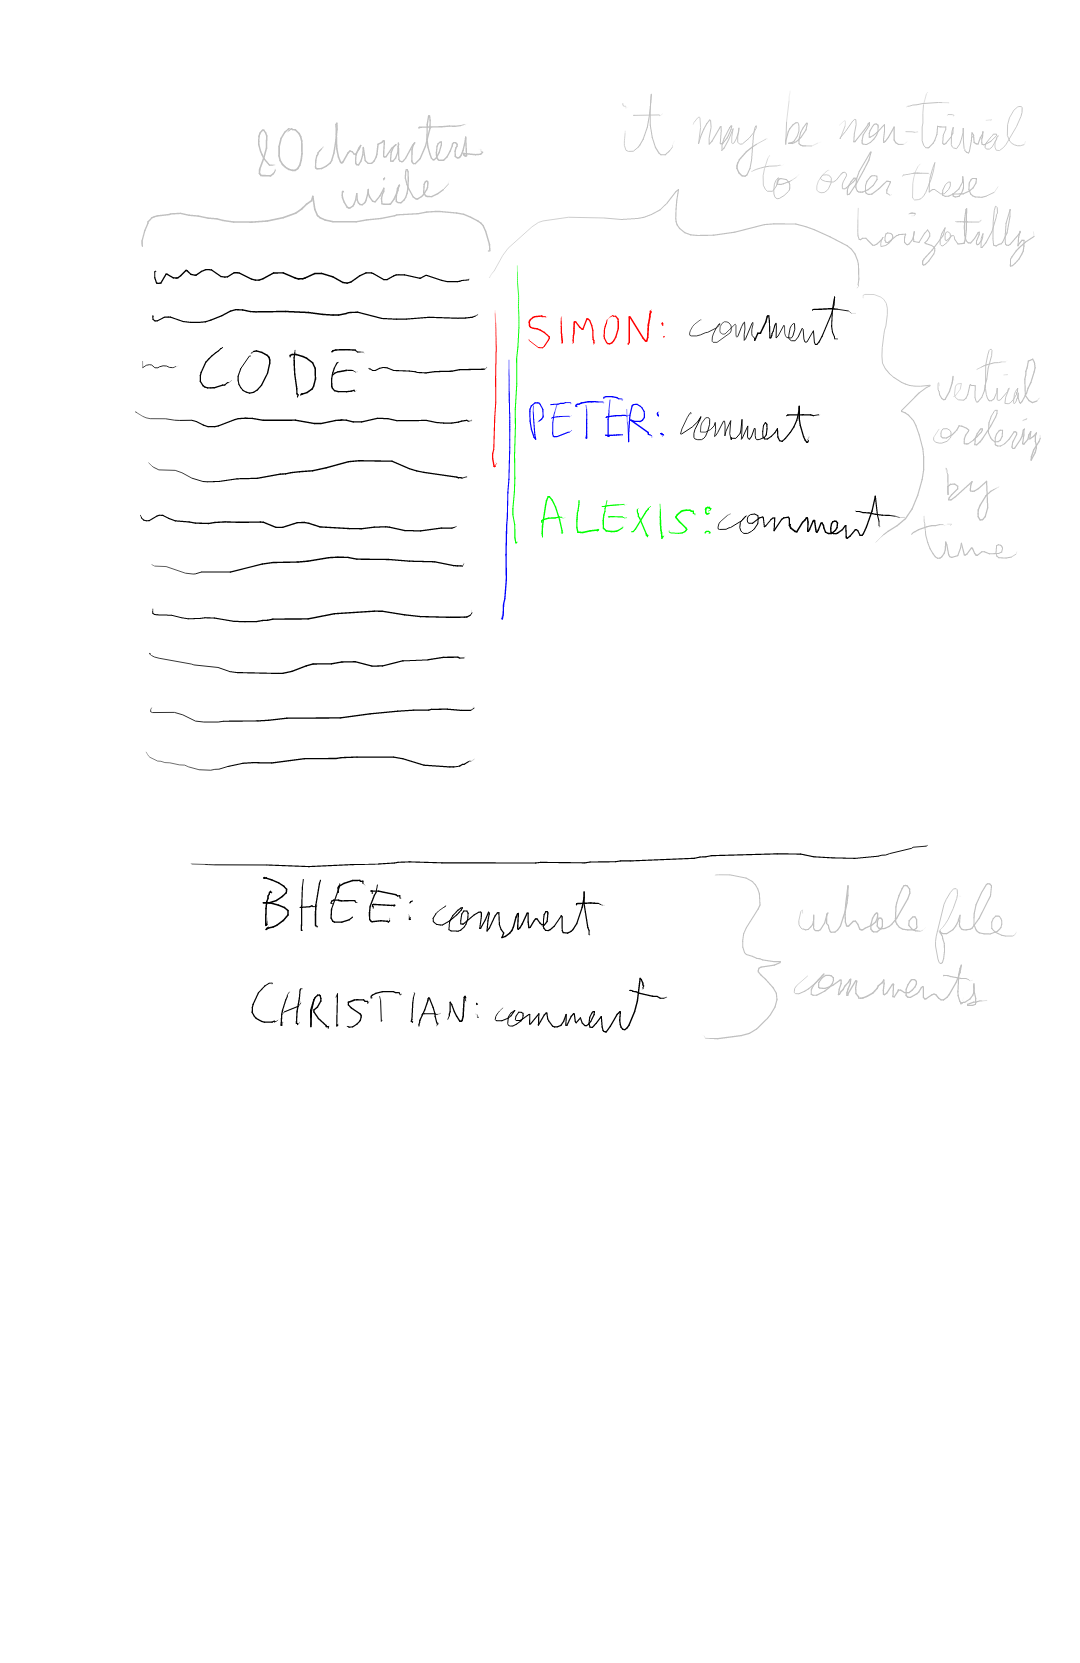 80 characters
wide
it may be non-trivial
to order these
horizontally
CODE
SIMON: comment
PETER: comment
ALEXIS: comment
vertical
ordering
by
time
BHEE: comment
CHRISTIAN: comment
whole file
comments